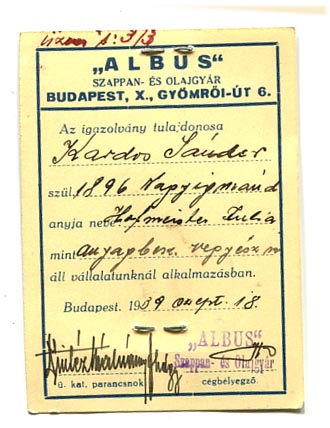 „ALBUS"
SZAPPAN- ÉS OLAJGYÁR
BUDAPEST, X., GYÖMRŐI-ÚT 6.
Az igazolvány tulajdonosa
Kardos Sándor
szül. 1896
anyja neve Hofmeister Júlia
mint anyagbesz. vegyész
áll vállalatunknál alkalmazásban.
Budapest, 1939 szept. 18.
„ALBUS"
Szappan- és Olajgyár
ü. kat. parancsnok cégbélyegző.